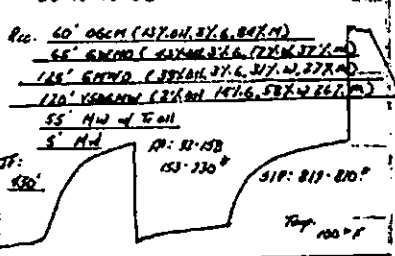 Rec. 60' OGCM (13% oil, 3% G, 84% M)
65' GWMO (43% oil, 3% G, 17% W, 37% M)
125' GMWO (39% oil, 3% G, 31% W, 27% M)
120' (2% oil 14% G, 58% W 26% M)
55' MW w/ Tr oil
5' Md
430'
FP: 32-153
153-230#
SIP: 819-810#
Temp. 100° F